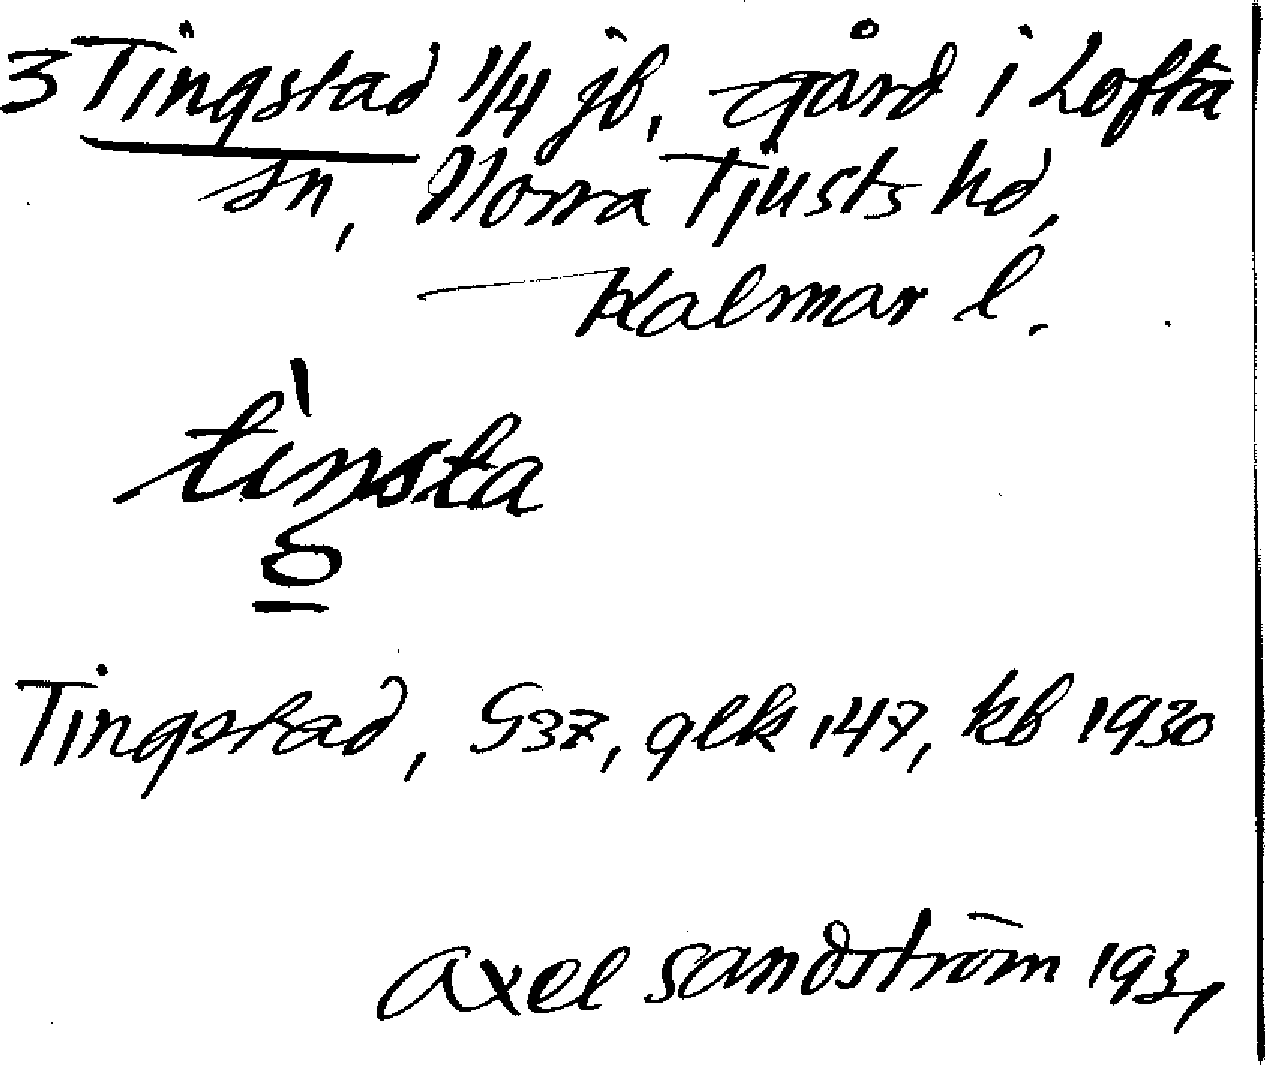 3 Tingstad 1/4 jb, gård i Lofta
sn, Norra Tjusts hd,
Kalmar l.
tiŋsta
Tingstad, G37, glk 147, kb 1930
Axel Sandström 1931